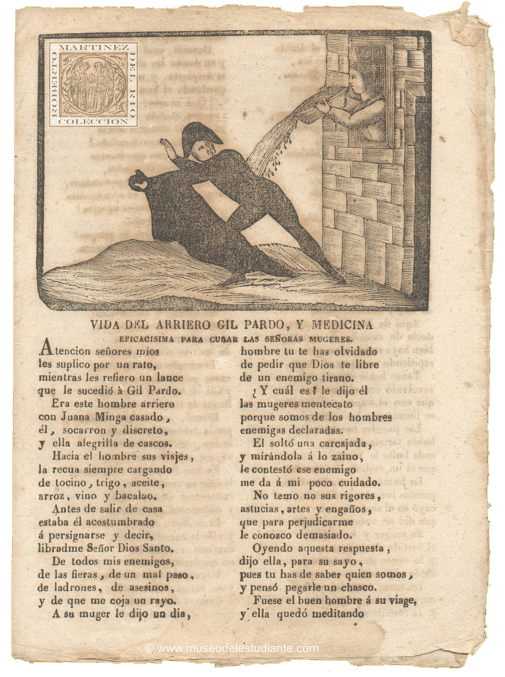 MARTINEZ
ROBERTO
DEL RIO
COLECCION
VIDA DEL ARRIERO GIL PARDO, Y MEDICINA
EFICACISIMA PARA CURAR LAS SEÑORAS MUGERES.
Atencion señores mios
les suplico por un rato,
mientras les refiero un lance
que le sucedió à Gil Pardo.
Era este hombre arriero
con Juana Minga casado,
él, socarron y discreto,
y ella alegrilla de cascos.
Hacia el hombre sus viajes,
la recua siempre cargando
de tocino, trigo, aceite,
arroz, vino y bacalao.
Antes de salir de casa
estaba él acostumbrado
á persignarse y decir,
libradme Señor Dios Santo.
De todos mis enemigos,
de las fieras, de un mal paso,
de ladrones, de asesinos,
y de que me coja un rayo.
A su muger le dijo un dia,
hombre tu te has olvidado
de pedir que Dios te libre
de un enemigo tirano.
¿Y cuál es? le dijo él
las mugeres mentecato
porque somos de los hombres
enemigas declaradas.
El soltó una carcajada,
y mirándola á lo zaino,
le contestó ese enemigo
me da á mi poco cuidado.
No temo no sus rigores,
astucias, artes y engaños,
que para perjudicarme
le conozco demasiado.
Oyendo aquesta respuesta,
dijo ella, para su sayo,
pues tu has de saber quien somos,
y pensó pegarle un chasco.
Fuese el buen hombre á su viage,
y ella quedó meditando
© www.museodelestudiante.com